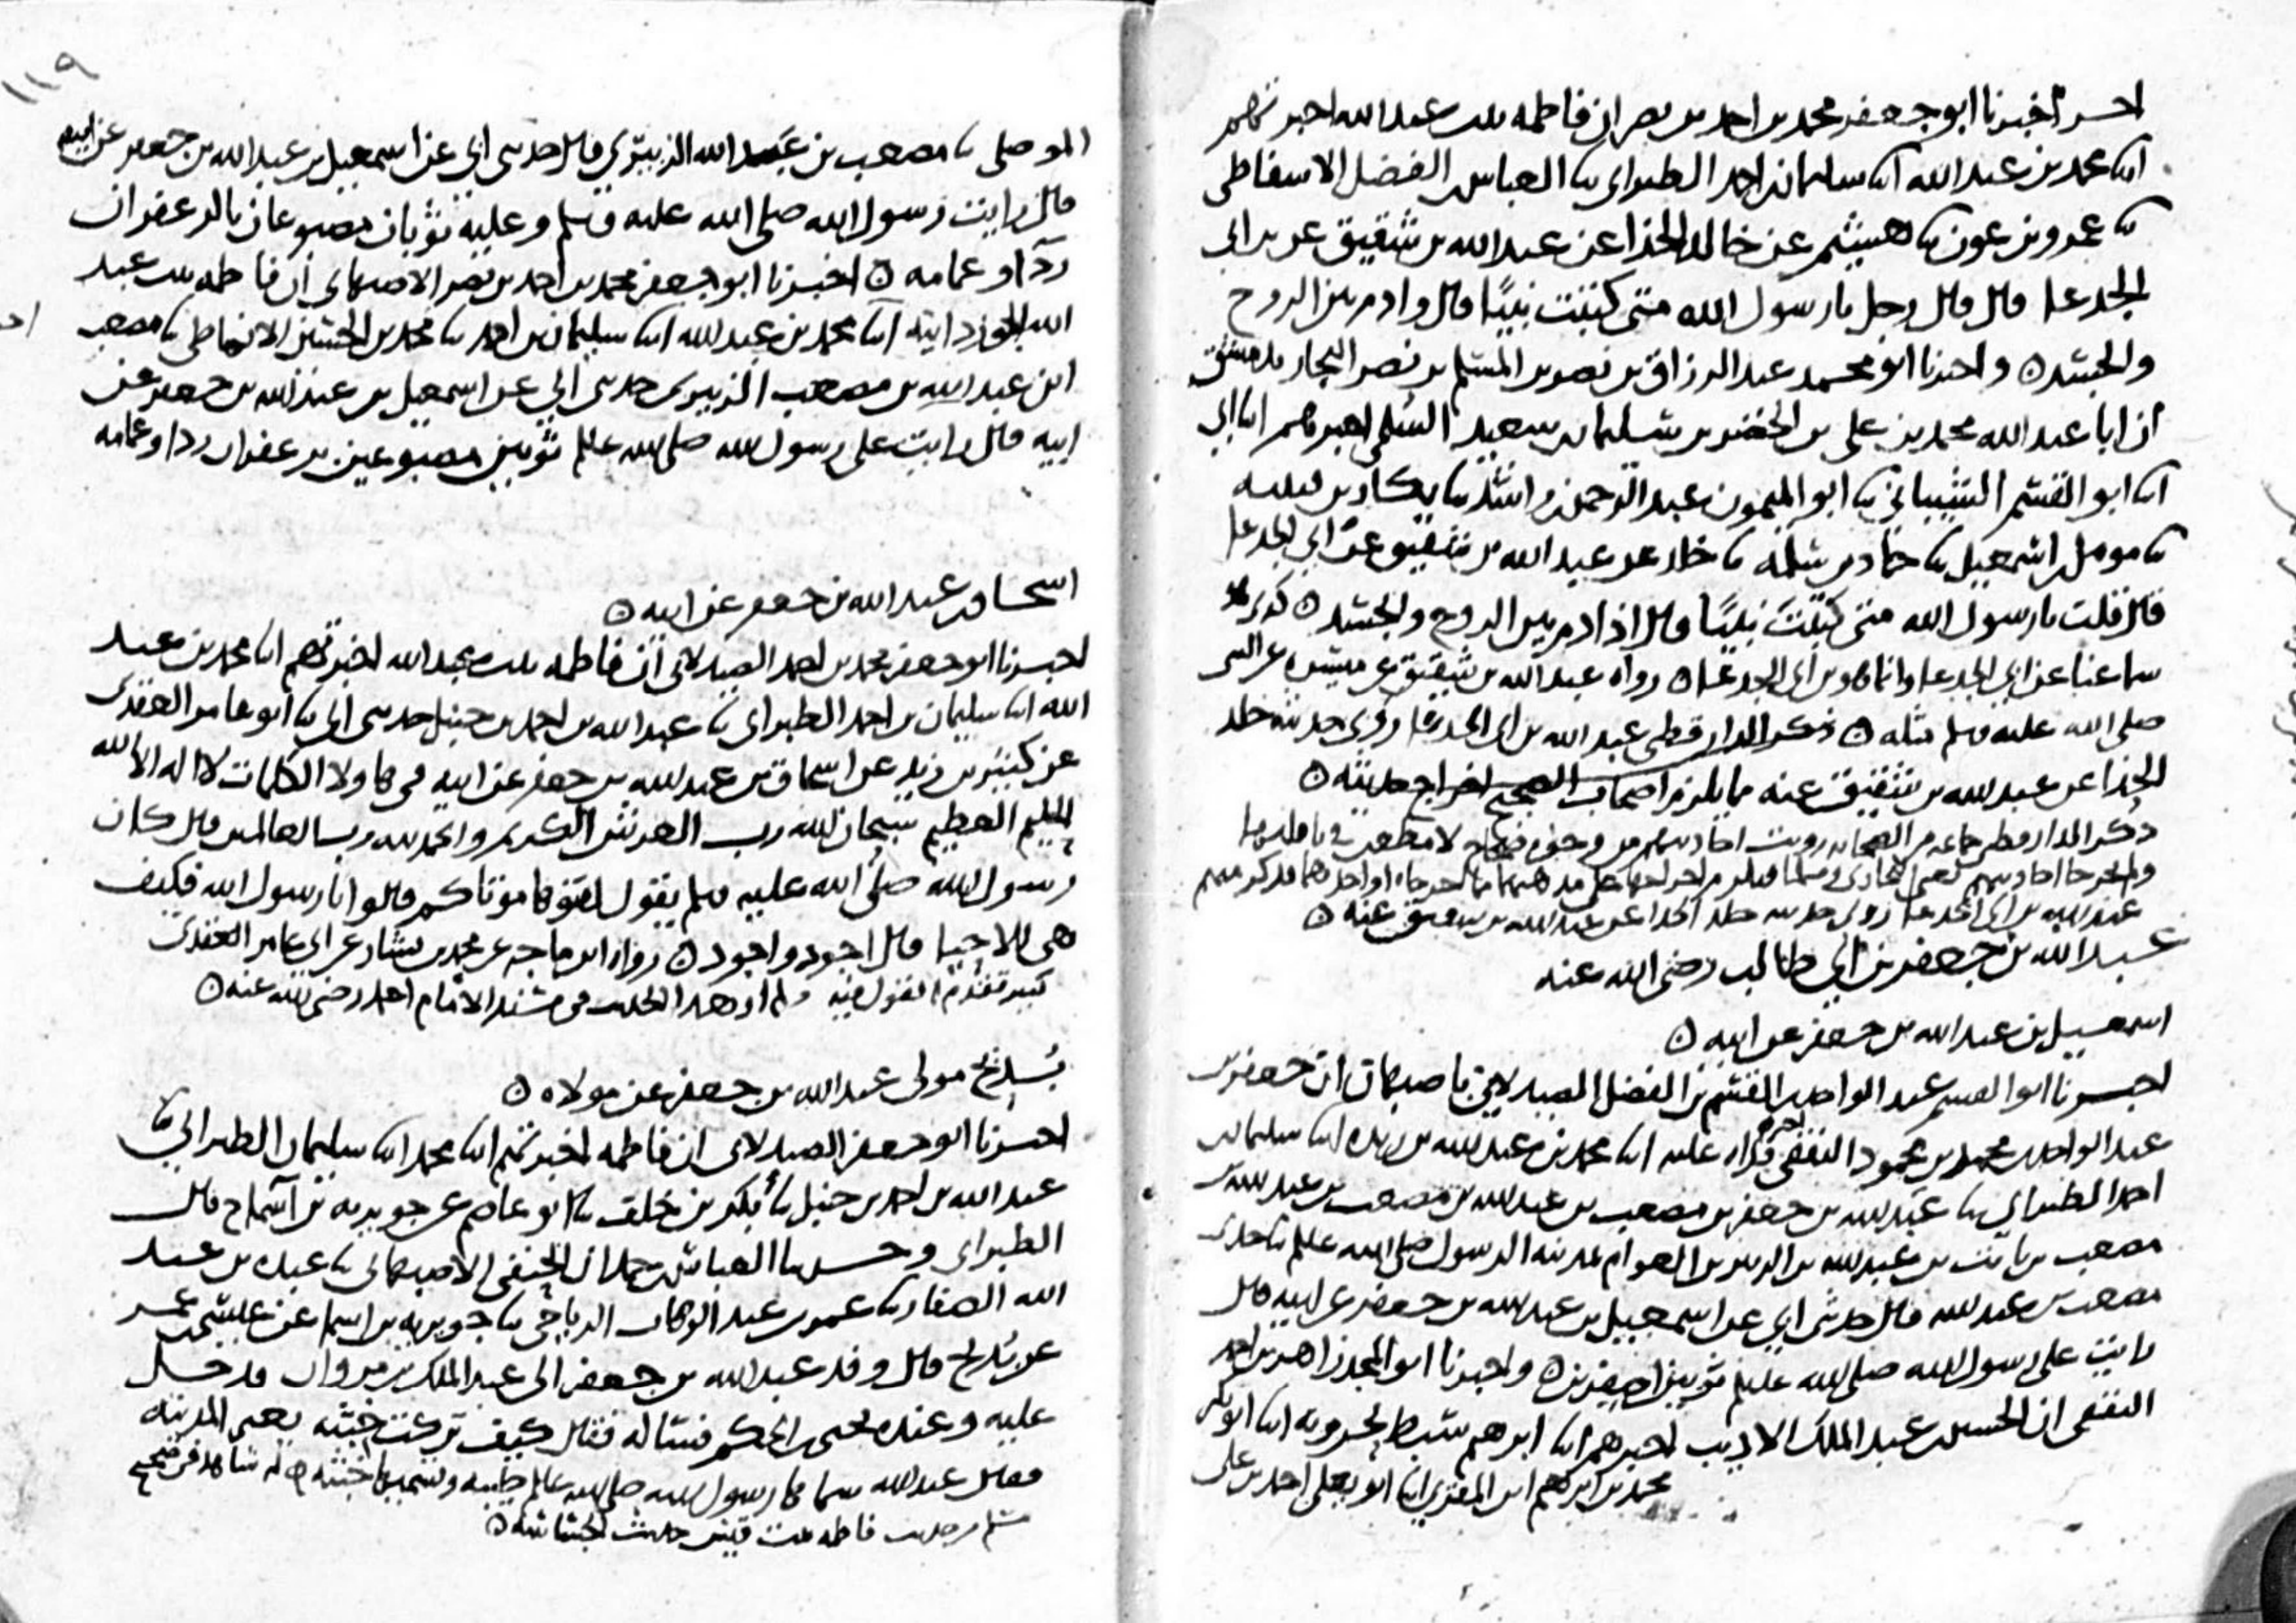 اخر أخبرنا ابو جعفر محمد بن احمد بن نصر ان فاطمه بنت عبد الله اخبرتهم
انا محمد بن عبد الله انا سليمان بن احمد الطبراني نا العباس بن الفضل الاسفاطي
نا عمرو بن عون نا هشيم عن خالد الحذا عن عبد الله بن شقيق عن بن ابي
الجدعا قال قال رجل يا رسول الله متى كتبت نبيًا قال وادم بين الروح
والجسد ٥ واخبرنا ابو محمد عبد الرزاق بن نصر بن المسلم بن نصر النجار بدمشق
ان ابا عبد الله محمد بن علي بن الخضر بن سليمان بن سعيد السلمي اخبرهم انا ابي
انا ابو القسم الشيباني نا ابو الميمون عبد الرحمن بن راشد نا بكار بن قتيبه
نا مومل بن اسمعيل نا حماد بن سلمه نا خالد عن عبد الله بن شقيق عن ابي الجدعا
قال قلت يا رسول الله متى كتبت نبيًا قال اذ ادم بين الروح والجسد ٥ كذى
سماعنا عن ابي الجدعا وانما هو بن ابي الجدعا ٥ رواه عبد الله بن شقيق عن ميسره عن النبي
صلى الله عليه وسلم مثله ٥ ذكر الدارقطني عبد الله بن ابي الجدعا روى حديثه خالد
الحذا عن عبد الله بن شقيق عنه مما يلزم اصحاب الصحيح اخراج حديثه ٥
ذكر الدارقطني جماعه من الصحابه رويت احاديثهم من وجوه صحاح لا مطعن في ناقليها
ولم يخرجا احاديثهم يعني البخاري ومسلما فيلزم اخراجها على مذهبهما
عبد الله بن ابي الجدعا روى حديثه خالد الحذا عن عبد الله بن شقيق عنه ٥
عبد الله بن جعفر بن ابي طالب رضي الله عنه
اسمعيل بن عبد الله بن جعفر عن ابيه ٥
اخبرنا ابو القسم عبد الواحد بن القسم بن الفضل الصيدلاني باصبهان ان جعفر بن
عبد الواحد بن محمد بن محمود الثقفي اخبرهم قراه عليه انا محمد بن عبد الله بن ريذه انا سليمان بن
احمد الطبراني نا عبد الله بن جعفر بن مصعب بن عبد الله بن مصعب بن عبد الله بن
مصعب بن ثابت بن عبد الله بن الزبير بن العوام بمدينه الرسول صلى الله عليه وسلم نا جدي
مصعب بن عبد الله قال حدثني ابي عن اسمعيل بن عبد الله بن جعفر عن ابيه قال
رايت على رسول الله صلى الله عليه وسلم ثوبين اصفرين ٥ واخبرنا ابو المجد زاهر بن احمد
الثقفي ان الحسين بن عبد الملك الاديب اخبرهم انا ابرهيم سبط بحرويه انا ابو بكر
محمد بن ابرهيم ابن المقرئ انا ابو يعلى احمد بن علي
١١٩
الموصلي نا مصعب بن عبد الله الزبيري قال حدثني ابي عن اسمعيل بن عبد الله بن جعفر عن ابيه
قال رايت رسول الله صلى الله عليه وسلم وعليه ثوبان مصبوغان بالزعفران
ردآ وعمامه ٥ اخبرنا ابو جعفر محمد بن احمد بن نصر الاصبهاني ان فاطمه بنت عبد
الله الجوزدانيه انا محمد بن عبد الله انا سليمان بن احمد نا محمد بن الحسين الانماطي نا مصعب
ابن عبد الله بن مصعب الزبيري حدثني ابي عن اسمعيل بن عبد الله بن جعفر عن
ابيه قال رايت على رسول الله صلى الله عليه وسلم ثوبين مصبوغين بزعفران ردا وعمامه
اسحاق بن عبد الله بن جعفر عن ابيه ٥
اخبرنا ابو جعفر محمد بن احمد الصيدلاني ان فاطمه بنت عبد الله اخبرتهم انا محمد بن عبد
الله انا سليمان بن احمد الطبراني نا عبد الله بن احمد بن حنبل حدثني ابي نا ابو عامر العقدي
عن كثير بن زيد عن اسحاق بن عبد الله بن جعفر عن ابيه في هاولا الكلمات لا اله الا الله
الحليم العظيم سبحان الله رب العرش الكريم والحمد لله رب العالمين قال كان
رسول الله صلى الله عليه وسلم يقول لقنوها موتاكم قالوا يا رسول الله فكيف
هي للاحيا قال اجود واجود ٥ رواه ابن ماجه عن محمد بن بشار عن ابي عامر العقدي
كثير تقدم القول فيه ولم ار هذا الحديث في مسند الامام احمد رضي الله عنه ٥
بُديح مولى عبد الله بن جعفر عن مولاه ٥
اخبرنا ابو جعفر الصيدلاني ان فاطمه اخبرتهم انا محمد انا سليمان الطبراني نا
عبد الله بن احمد بن حنبل نا بكر بن خلف نا ابو عاصم عن جويريه بن اسما ح قال
الطبراني وحدثنا العباس بن حمدان الحنفي الاصبهاني نا عبده بن عبد
الله الصفار نا عمر بن عبد الوهاب الرياحي نا جويريه بن اسما عن عيسى بن عمر
عن بُديح قال وفد عبد الله بن جعفر الى عبد الملك بن مروان فدخل
عليه وعنده يحيى بن الحكم فساله فقال كيف تركت خبثه يعني المدينه
فقال عبد الله سماها رسول الله صلى الله عليه وسلم طيبه وتسميها خبثه ٥ له شاهد في صحيح
مسلم من حديث فاطمه بنت قيس حديث الجساسه ٥